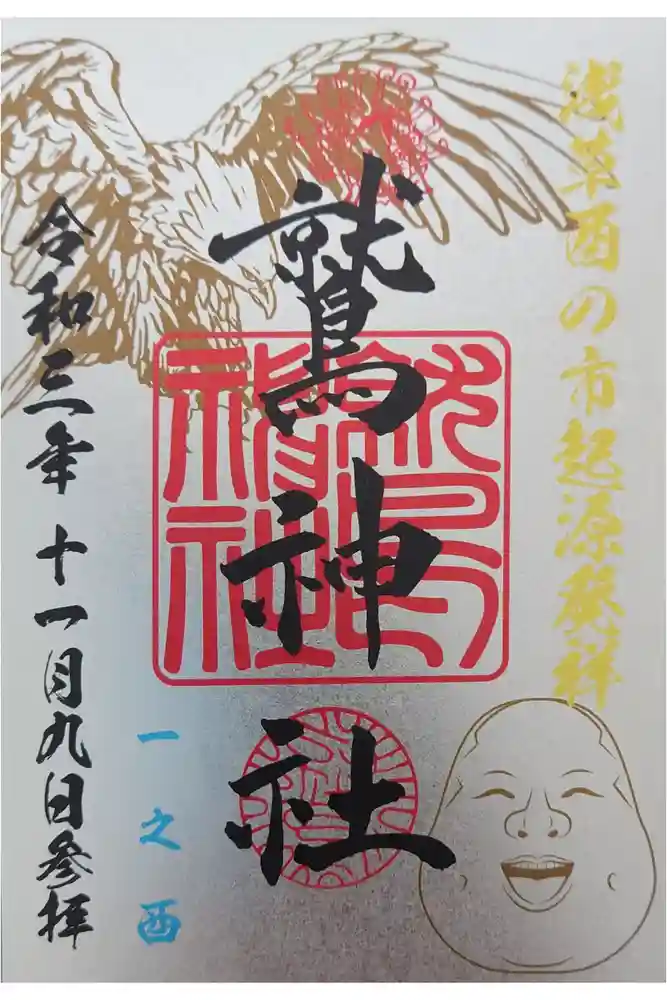 浅草酉の市起源発祥
鷲神社
一之酉
令和三年十一月九日参拝